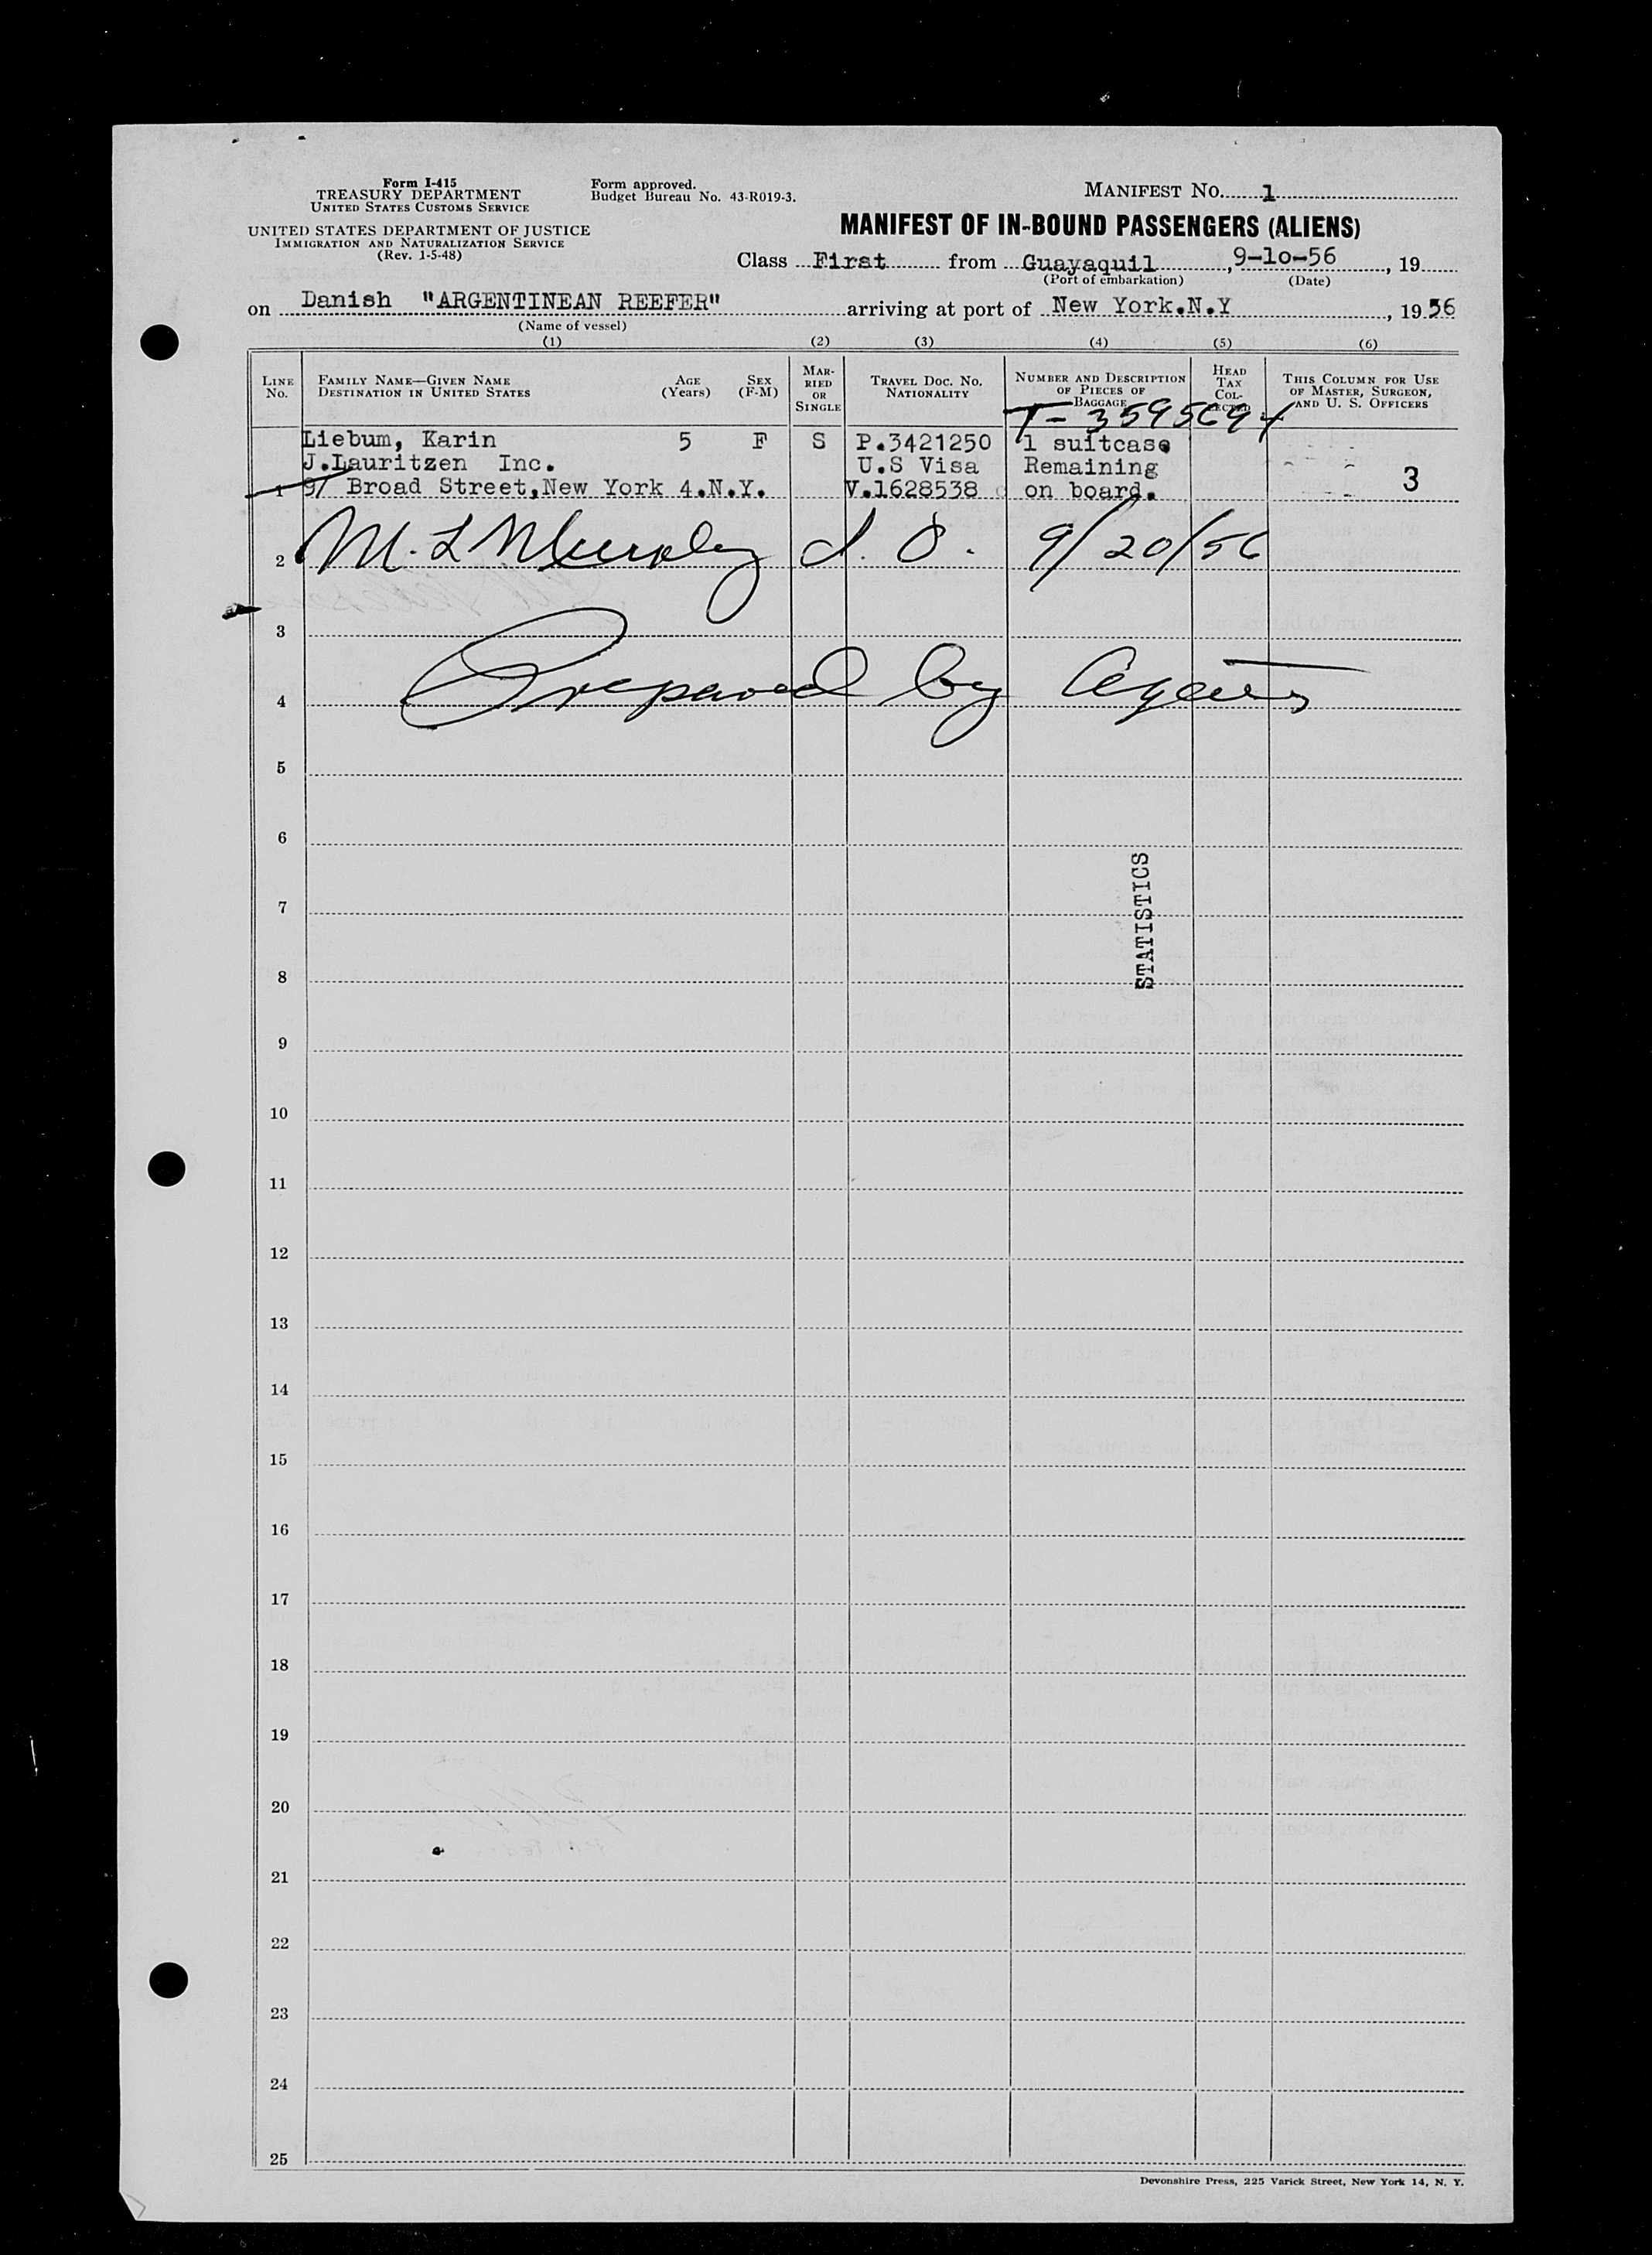 Form I-415
TREASURY DEPARTMENT
UNITED STATES CUSTOMS SERVICE
UNITED STATES DEPARTMENT OF JUSTICE
IMMIGRATION AND NATURALIZATION SERVICE
(Rev. 1-5-48)
Form approved.
Budget Bureau No. 43-R019-3.
MANIFEST No. 1
MANIFEST OF IN-BOUND PASSENGERS (ALIENS)
Class First from Guayaquil, 9-10-56, 19
(Port of embarkation) (Date)
on Danish "ARGENTINEAN REEFER" arriving at port of New York.N.Y, 1956
(Name of vessel)
(1) (2) (3) (4) (5) (6)
LINE No.
FAMILY NAME—GIVEN NAME
DESTINATION IN UNITED STATES
AGE (Years)
SEX (F-M)
MARRIED OR SINGLE
TRAVEL DOC. NO.
NATIONALITY
NUMBER AND DESCRIPTION OF PIECES OF BAGGAGE
HEAD TAX COLLECTED
THIS COLUMN FOR USE OF MASTER, SURGEON, AND U. S. OFFICERS
T-3595694
Liebum, Karin 5 F S P.3421250 1 suitcase
J.Lauritzen Inc. U.S Visa Remaining
1 Broad Street,New York 4.N.Y. V.1628538 on board. 3
2 M. L Murphy I. O. 9/20/56
3
4 Prepared by Agents
5
6
STATISTICS
7
8
9
10
11
12
13
14
15
16
17
18
19
20
21
22
23
24
25
Devonshire Press, 225 Varick Street, New York 14, N. Y.